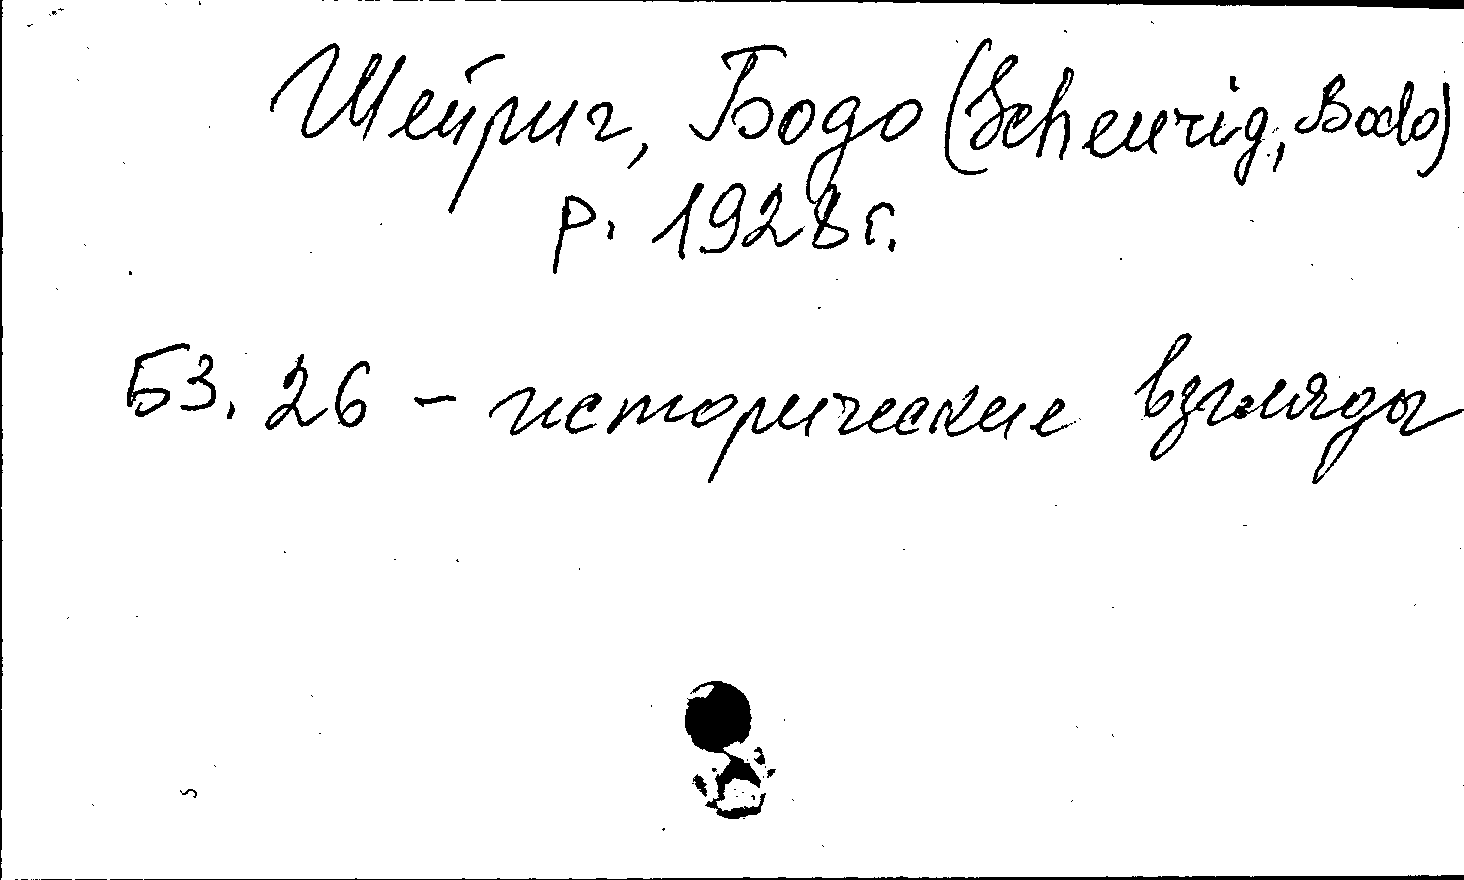 Шейриг, Бодо (Scheurig, Bodo)
р. 1928 г.
Б3. 26 – исторические взгляды